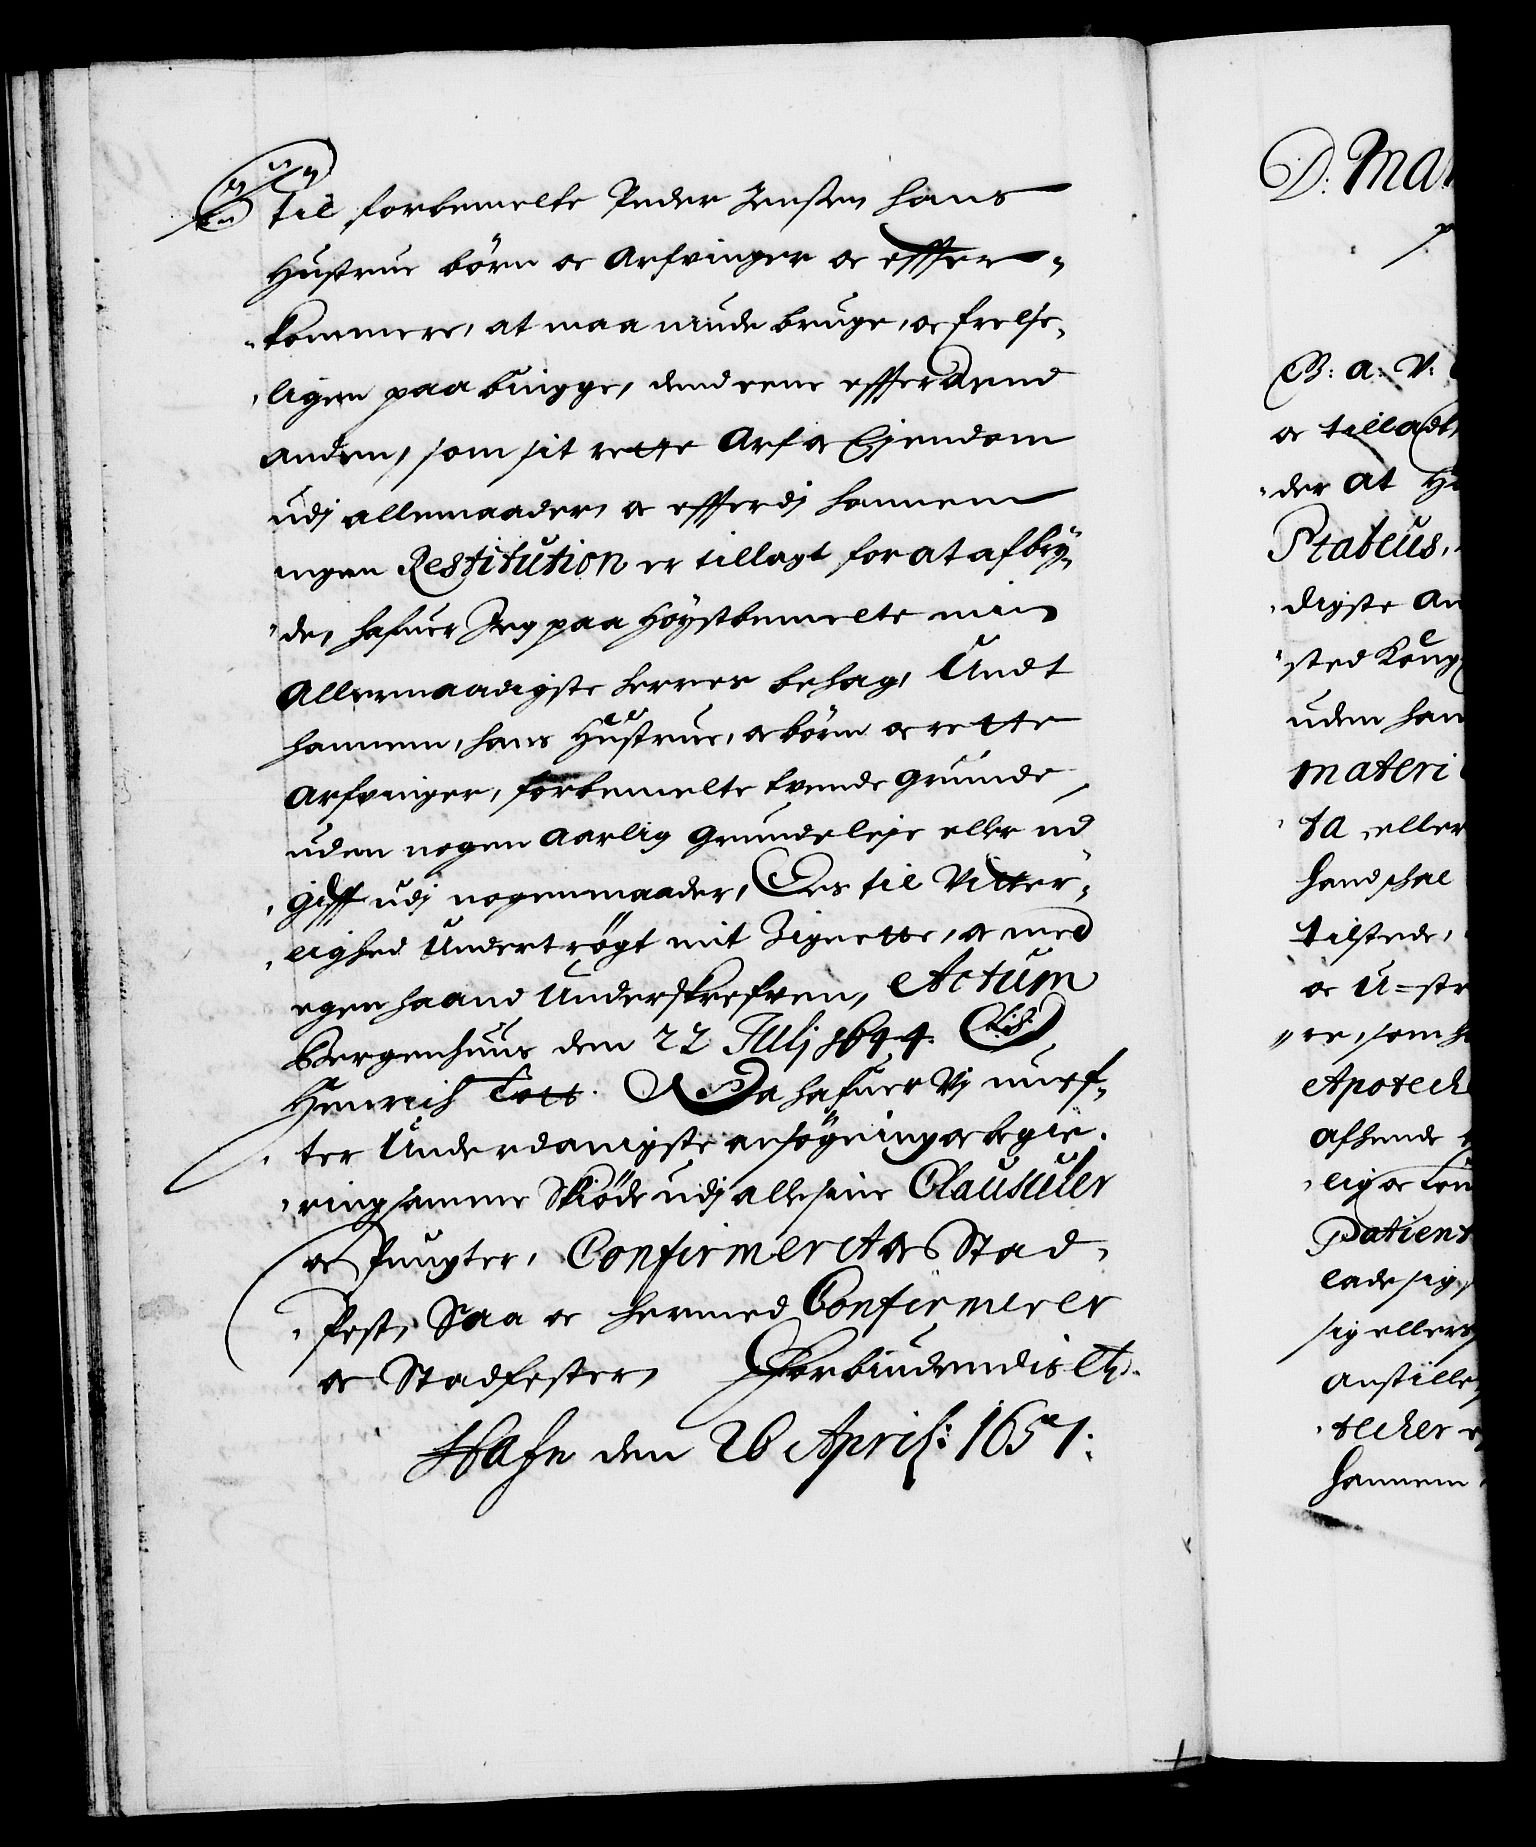 til forbemelte Peder Jensen hans
Hustrue börn oc Arfvinger oc effter-
kommere, at maa niude bruge, oc frelse-
ligen paa bӱgge, dend eene effter dend
anden, som sit rette Arf oc Eiendom
udj allemaader, oc effterdj hannem
ingen Restitution er tillagt for at afbrӱ-
de, hafuer Jeg paa Höӱstbemelte min
Allernaadigste herres behag, Undt
hannem, hans Hustrue, oc börn oc rette
Arfvinger, forbemelte tvende grunde
uden nogen Aarlig grundeleje eller ud
gifft udj nogenmaader, Des til Vitter-
lighed Undertrögt mit Zignette, oc med
egen haand Underskrefven, Actum
Bergenhuus den 22 Julj 1644. L.S.
Henrich Tott. Da hafuer Vj nu ef-
ter Underdanigste ansögning oc begie-
ring samme Skiöde udj alle sine Clausuler
oc Puncter, Confirmerit oc Stad-
fest, Saa oc hermed Confirmerer
oc Stadfester, Forbiudendis etc.
Hafn den 26 April: 1651.
D: Ma
B: a: V:
oc tilladt,
der at H
Stabeus,
digste an
sted Kong
uden han
materi
ta, eller
hand skal
tilstede,
oc U=str
re, som h
Apoteck
afhende
lig oc
Patient
lade sig
sig ellers
anstille
tecker
hannem